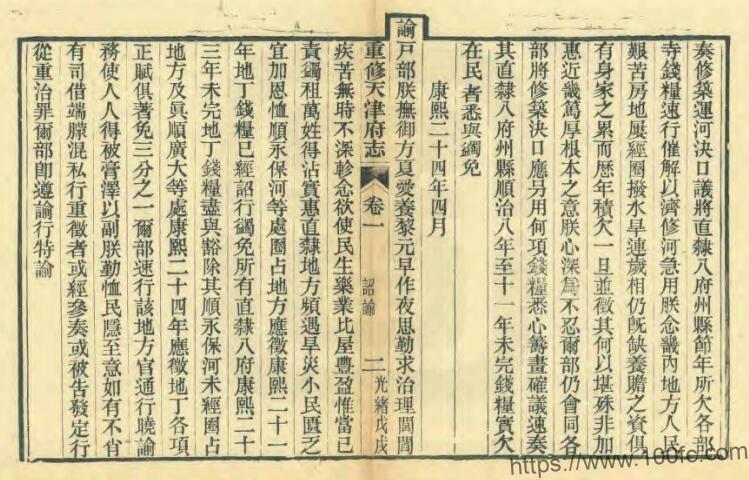 奏修築運河決口議將直隸八府州縣節年所欠各部
寺錢糧速行催解以濟修河急用朕念畿內地方人民
艱苦房地屢經圈撥水旱連歲相仍旣缺養贍之資俱
有身家之累而歷年積欠一旦並徵其何以堪殊非加
惠近畿篤厚根本之意朕心深爲不忍爾部仍會同各
部將修築決口應另用何項錢糧悉心籌畫確議速奏
其直隸八府州縣順治八年至十一年未完錢糧實欠
在民者悉與蠲免
康熙二十四年四月
諭戸部朕撫御方夏愛養黎元早作夜思勤求治理閭閻
重修天津府志 卷一 詔諭 二 光緒戊戌
疾苦無時不深軫念欲使民生樂業比屋豐盈惟當已
責蠲租萬姓得沾實惠直隸地方頻遇旱災小民匱乏
宜加恩恤順永保河等處圈占地方應徵康熙二十一
年地丁錢糧已經詔行蠲免所有直隸八府康熙二十
三年未完地丁錢糧盡與豁除其順永保河未經圈占
地方及眞順廣大等處康熙二十四年應徵地丁各項
正賦俱著免三分之一爾部速行該地方官通行曉諭
務使人人得被膏澤以副朕勤恤民隱至意如有不肖
有司借端朦混私行重徵者或經參奏或被告發定行
從重治罪爾部卽遵諭行特諭
https://www.100fc.com